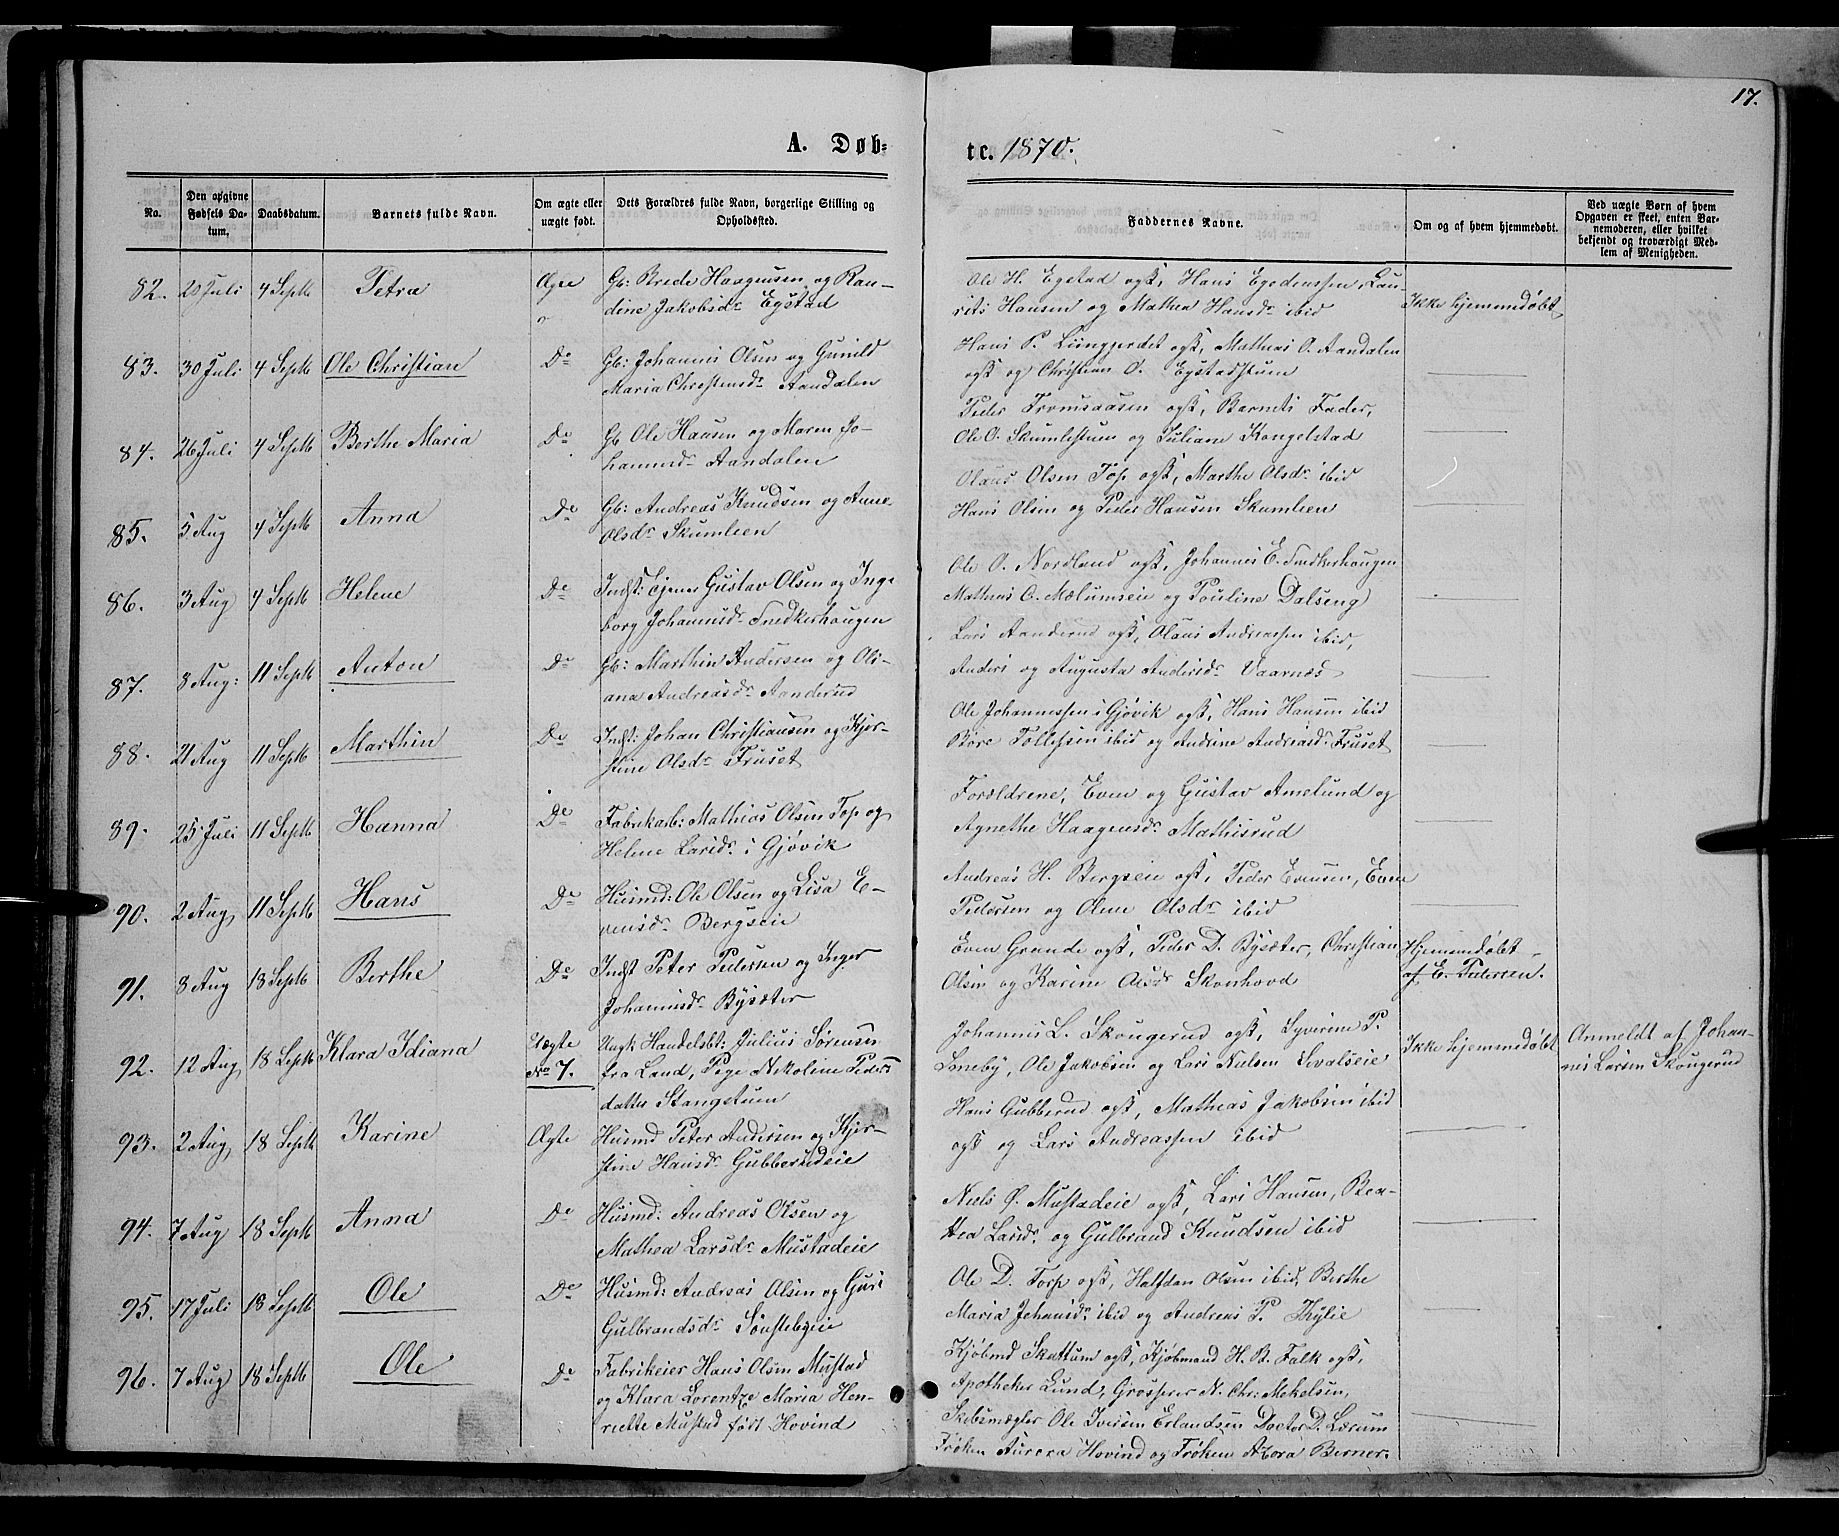 17.
A. Døb-
te. 1870.
No.
Den opgivne
Fødsels Da-
tum.
Daabsdatum.
Barnets fulde Navn.
Om ægte eller
uægte født.
Dets Forældres fulde Navn, borgerlige Stilling og
Opholdssted.
Faddernes Navne.
Om og af hvem hjemmedøbt.
Ved uægte Børn af hvem
Opgaven er skeet, enten Bar-
nemoderen, eller hvilket
bekjendt og troværdigt Med-
lem af Menigheden.
82. 20 Juli 4 Septb Petra Ægte
Gb: Brede Haagensen og Ran-
dine Jakobsdr Egstad
Ole H. Egstad ogst, Hans Egedenssen, Lau-
rits Hansen og Mathea Hansdr ibid
Ikke hjemmedøbt
83. 30 Juli 4 Septb Ole Christian Do
Gb: Johannes Olsen og Gunild
Maria Christensdr Aandalen
Hans P. Liinggjerdet ogst, Mathias O. Aandalen
ogst og Christian O. Egstadstuen
84. 26 Juli 4 Septb Berthe Maria Do
Gb Ole Hansen og Maren Jo-
hannesdr Aandalen
Peder Tromsaasen ogst, Barnets Fader,
Ole O. Skumlestuen og Juliane Kongelstad
85. 5 Aug 4 Septb Anna Do
Gb: Andreas Knudsen og Anne
Olsdr Skumlien
Olaus Olsen Top ogst, Marthe Olsdr ibid
Hans Olsen og Peder Hansen Skumlien
86. 3 Aug 4 Septb Helene Do
Indst: Ejener Gustav Olsen og Inge
borg Johannesdr Snedkerhaugen
Ole O. Nordland ogst, Johannes E. Snedkerhaugen
Mathias O. Mælumseie og Pouline Dalseng
87. 8 Aug: 11 Septb Anton Do
Gb: Marthin Andersen og Oli-
ana Andreasdr Aanderud
Lars Aanderud ogst, Olaus Andreassen ibid,
Anders og Augusta Andersdr Vaarnæs
88. 21 Aug 11 Septb Marthin Do
Indst: Johan Christiansen og Kjer-
stine Olsdr Fruset
Ole Johannessen i Gjøvik ogst, Hans Hansen ibid
Bore Tollefsen ibid og Andrine Andreasdr Fruset
89. 25 Juli 11 Septb Hanna Do
Fabrikarb: Mathias Olsen Top og
Helene Larsdr i Gjøvik
Forældrene, Even og Gustav Amelund og
Agnethe Haagensdr Mathisrud
90. 2 Aug 11 Septb Hans Do
Husmd: Ole Olsen og Lisa E-
vensdr Bergseie
Andreas H. Bergseie ogst, Peder Evensen, Even
Pedersen og Olene Olsdr ibid
91. 8 Aug 18 Septb Berthe Do
Indst Peter Pedersen og Inger
Johannesdr Bysæter
Even Grande ogst, Peder D. Bysæter, Christian
Olsen og Karine Olsdr Skonhovd
Hjemmedøbt
af E. Pedersen.
92. 12 Aug 18 Septb Klara Idiana Uægte
No 7.
Ungk Handelsbt: Julius Sørensen
fra Land, Pige Nikoline Peders
datter Stangstuen
Johannes L. Skougerud ogst, Syverine P.
Smeby, Ole Jakobsen og Lars Nielsen Sovalseie
Ikke hjemmedøbt
Anmeldt af Johan-
nes Larsen Skougerud
93. 2 Aug 18 Septb Karine Ægte
Husmd Peter Andersen og Kjer-
stine Hansdr Gubberudeie
Hans Gubberud ogst, Mathias Jakobsen ibid
ogst og Lars Andreassen ibid
94. 7 Aug 18 Septb Anna Do
Husmd: Andreas Olsen og
Mathea Larsdr Mustadeie
Niels Ø. Mustadeie ogst, Lars Hansen, Bea-
thea Larsdr og Gulbrand Knudsen ibid
95. 17 Juli 18 Septb Ole Do
Husmd: Andreas Olsen og Guri
Gulbrandsdr Sønstebyeie
Ole D. Torp ogst, Halfdan Olsen ibid, Berthe
Maria Johansdr ibid og Andreas P. Thylie
96. 7 Aug 18 Septb Ole Do
Fabrikeier Hans Olsen Mustad
og Klara Lorentze Maria Hen-
riette Mustad født Hovind
Kjøbmd Skattum ogst, Kjøbmand H. B. Falk ogst,
Apotheker Lund, Grosserer N. Chr: Mikelsen,
Skibsmægler Ole Iversen Erlandsen Doctor D. Lærum
Frøken Aurora Hovind og Frøken Thora Berner.